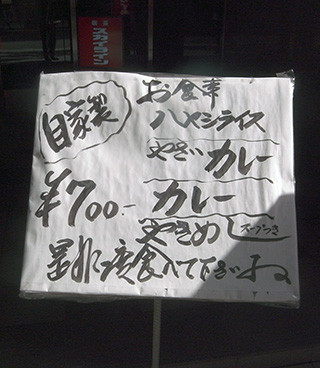 スカイライン
自家製
お食事
ハヤシライス
やさいカレー
カレー
¥700.-
やきめしスープつき
是非一度食べて下さいね